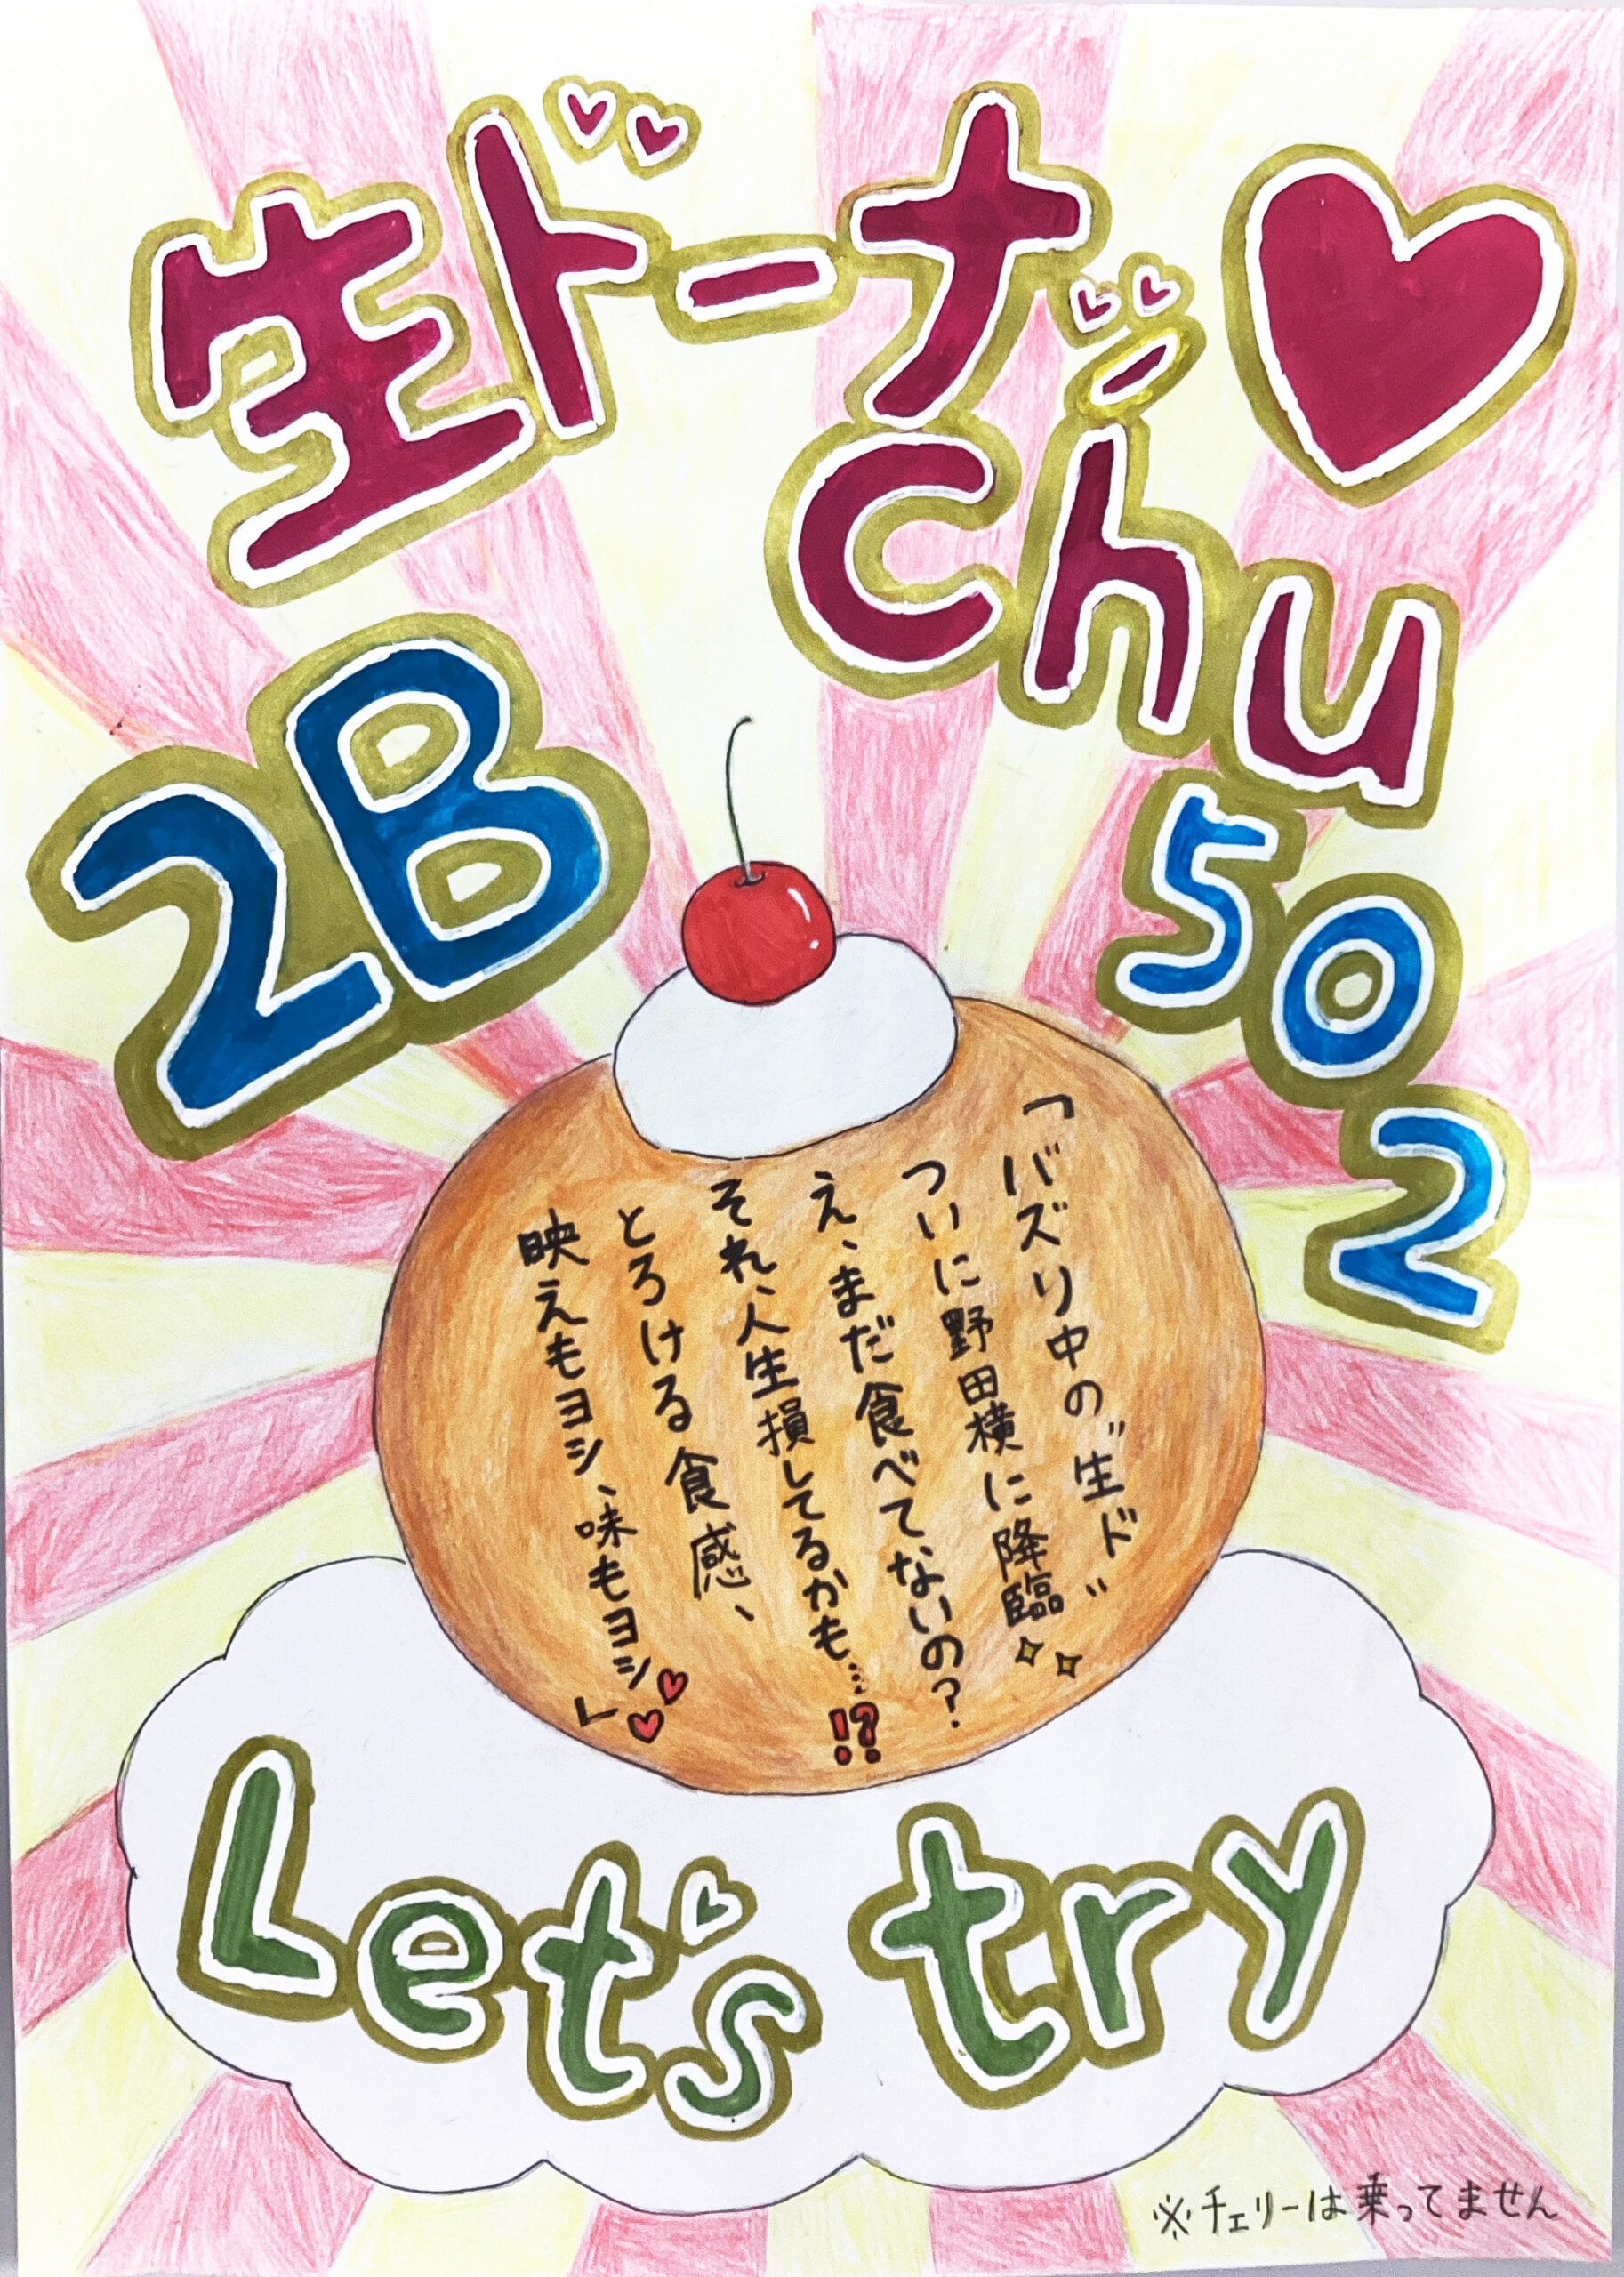 生ドーナ
chu♥
2B
502
「バズり中の"生ド"
ついに野田横に降臨✨
え、まだ食べてないの?
それ、人生損してるかも…!?
とろける食感、
映えもヨシ、味もヨシ♥♥」
Let's try
※チェリーは乗ってません